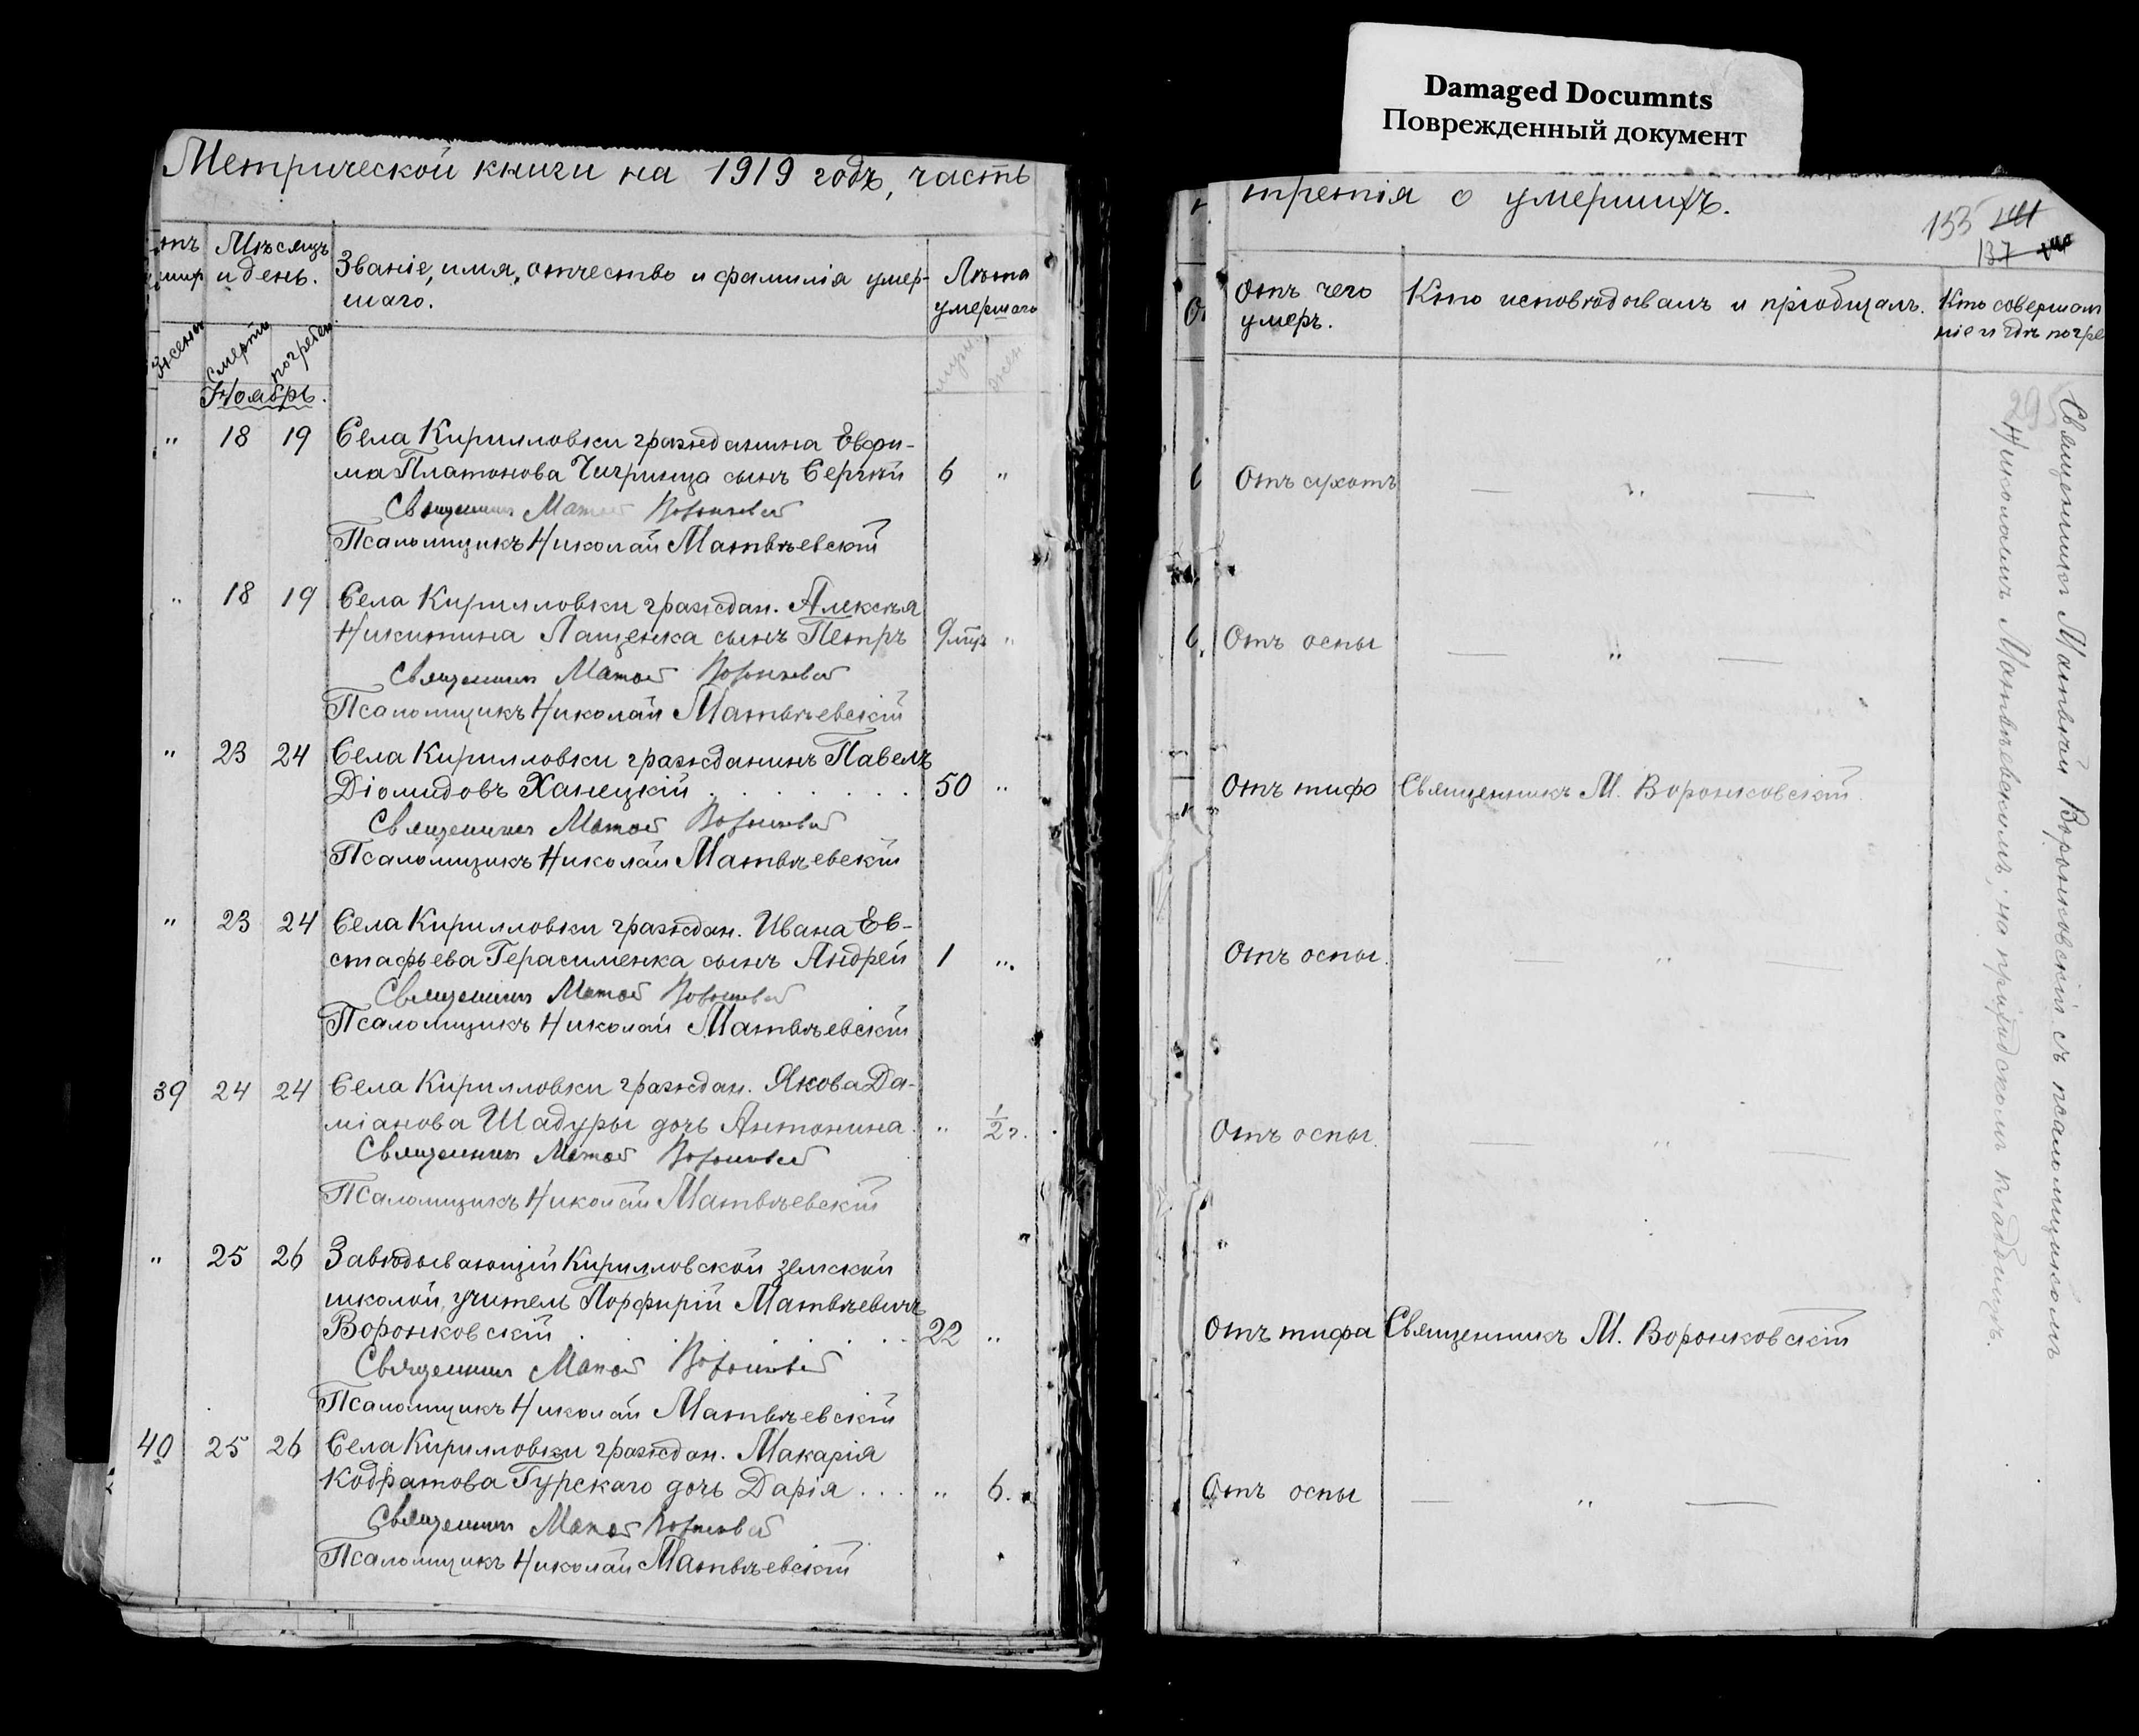 Damaged Documnts
Поврежденный документ
Метрической книги на 1919 годъ, часть
Мѣсяцъ
и день.
Званіе, имя, отчество и фамилія умер-
шаго.
Лѣта
умершаго
женск
смерти
погребен.
муж.
жен.
Ноябрь.
" 18 19 Села Кирилловки гражданина Евфи-
ма Платонова Чигринца сынъ Сергѣй 6 "
Священникъ Матѳей Воронковскій
Псаломщикъ Николай Матвѣевскій
" 18 19 Села Кирилловки граждан. Алексѣя
Никитина Лащенка сынъ Петръ 9 мѣс. "
Священникъ Матѳей Воронковскій
Псаломщикъ Николай Матвѣевскій
" 23 24 Села Кирилловки гражданинъ Павелъ
Діомидовъ Ханецкій . . . . . . 50 "
Священникъ Матѳей Воронковскій
Псаломщикъ Николай Матвѣевскій
" 23 24 Села Кирилловки граждан. Ивана Ев-
стафьева Герасименка сынъ Андрей 1 "
Священникъ Матѳей Воронковскій
Псаломщикъ Николай Матвѣевскій
39 24 24 Села Кирилловки граждан. Якова Да-
міанова Шадуры дочь Антонина. " 1/2 г.
Священникъ Матѳей Воронковскій
Псаломщикъ Николай Матвѣевскій
" 25 26 Завѣдывающій Кирилловской земской
школой, учитель Порфирій Матвѣевичъ
Воронковскій . . . . . . . . 22 "
Священникъ Матѳей Воронковскій
Псаломщикъ Николай Матвѣевскій
40 25 26 Села Кирилловки граждан. Макарія
Кодратова Гурскаго дочь Дарія . . . " 6.
Священникъ Матѳей Воронковскій
Псаломщикъ Николай Матвѣевскій
третія о умершихъ.
153 141
137
Отъ чего
умеръ.
Кто исповѣдывалъ и пріобщалъ.
Кто совершал
ніе и гдѣ погре
29
Отъ сухотъ — " —
Отъ оспы — " —
Отъ тифа Священникъ М. Воронковскій
Отъ оспы. — " —
Отъ оспы. — " —
Отъ тифа Священникъ М. Воронковскій
Отъ оспы — " —
Священникъ Матѳей Воронковскій съ псаломщикомъ
Николаемъ Матвѣевскимъ; на приходскомъ кладбищѣ.